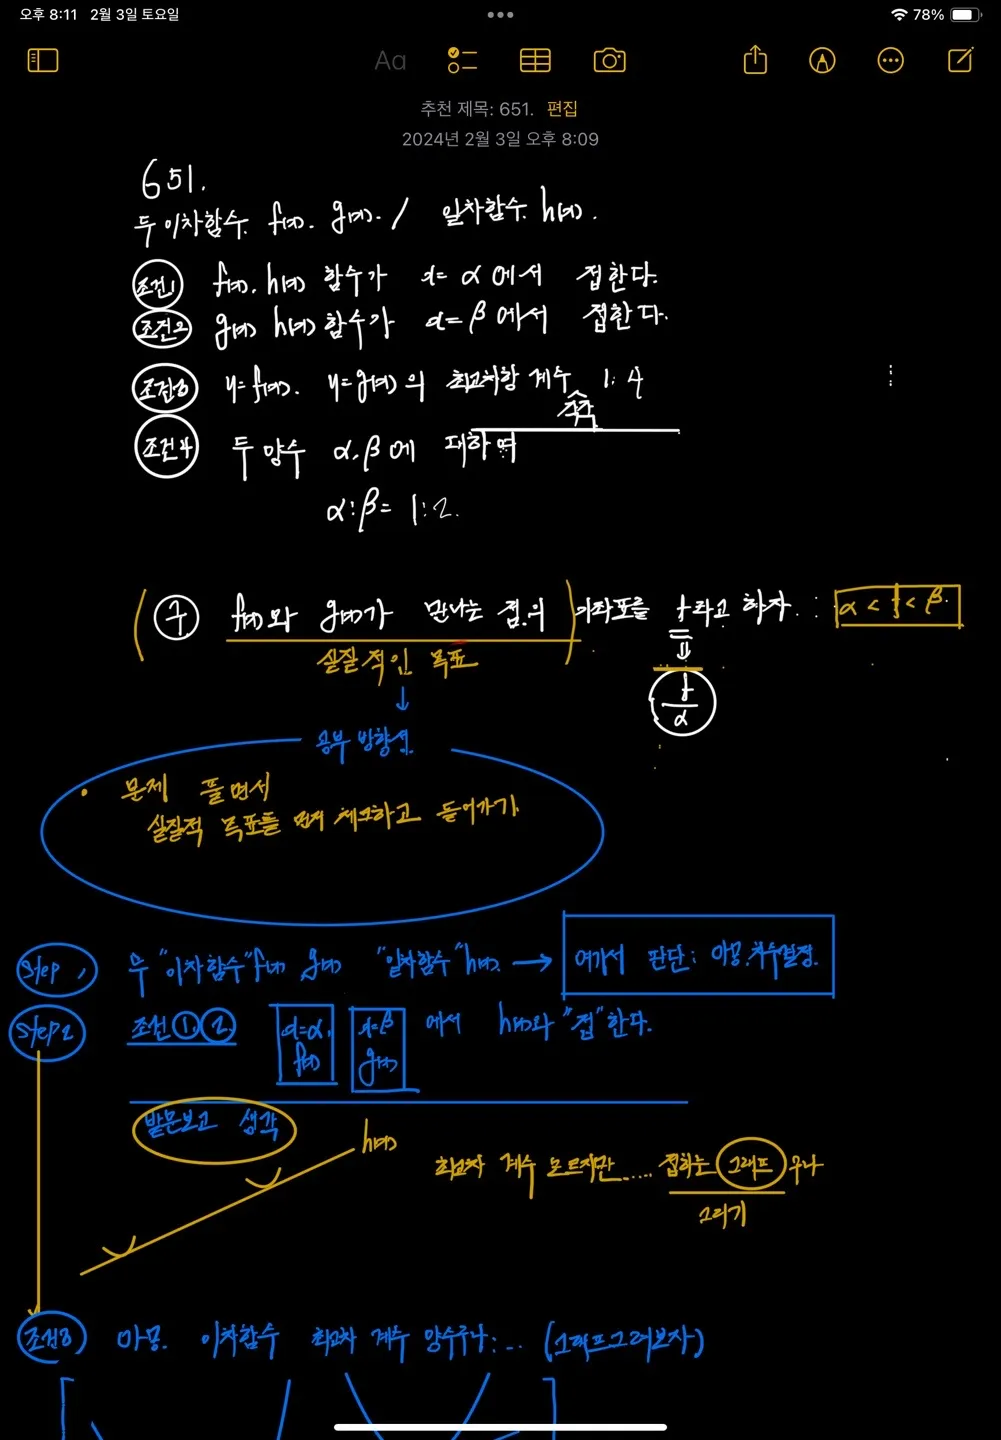 오후 8:11 2월 3일 토요일
78%
Aa
추천 제목: 651. 편집
2024년 2월 3일 오후 8:09
651.
두 이차함수 f(x). g(x). / 일차함수 h(x).
조건1 f(x), h(x) 함수가 x= α에서 접한다.
조건2 g(x) h(x) 함수가 x= β에서 접한다.
조건3 y= f(x). y= g(x)의 최고차항 계수 1:4
조건4 두 양수 α, β에 대하여
α:β= 1:2.
구 f(x)와 g(x)가 만나는 점의 x좌표를 t라고 하자. α < t < β
실질적인 목표
t/α
공부 방향성
• 문제 풀면서
실질적 목표를 먼저 체크하고 들어가기
Step 1 두 "이차함수" f(x) g(x) "일차함수" h(x) → 여기서 판단: 아몽. 차수결정.
Step 2 조건 ① ② x=α, f(x) x=β g(x) 에서 h(x)와 "접"한다.
발문보고 생각
h(x)
최고차 계수 모르지만..... 접하는 그래프 구나
그리기
조건3 아몽. 이차함수 최고차 계수 양수구나:... (그래프그려보자)